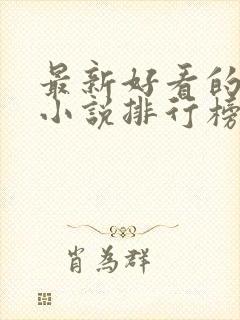 最新好看的
小说排行榜
肖为群